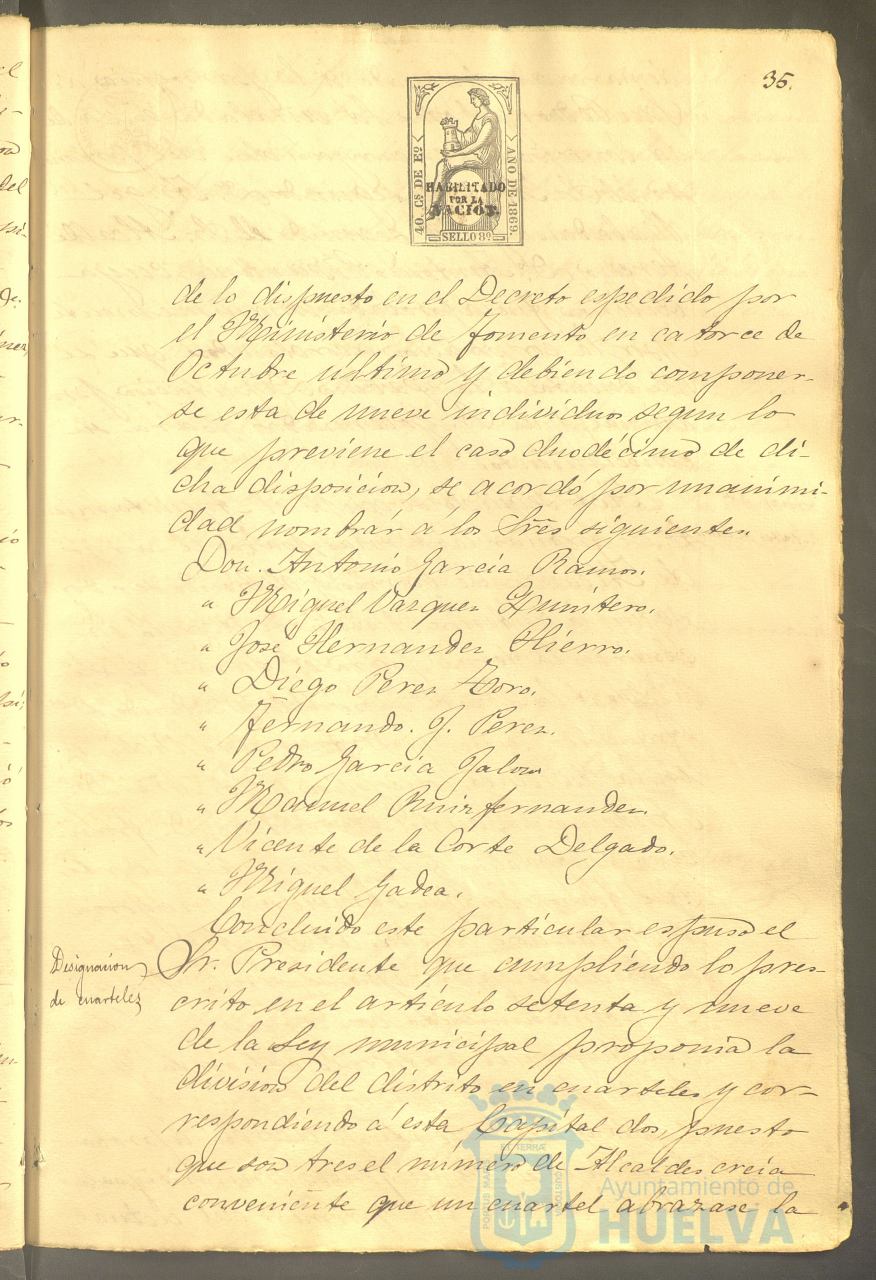 35.
40 Cs DE Eo
AÑO DE 1869.
HABILITADO
POR LA
NACION.
SELLO 8o
de lo dispuesto en el Decreto espedido por
el Ministerio de Fomento en catorce de
Octubre último y debiendo componer-
se esta de nueve individuos segun lo
que previene el caso duodécimo de di-
cha disposicion, se acordó por unanimi-
dad nombrár á los Sres siguientes.
Don. Antonio Garcia Ramos.
" Miguel Vazquez Quintero.
" José Hernandez Hierro.
" Diego Perez Toro.
" Fernando. J. Perez.
" Pedro Garcia Jalon
" Manuel Ruiz fernandez
" Vicente de la Corte Delgado.
" Miguel Gadea.
Concluido este particular espuso el
Designacion
de cuarteles
Sr. Presidente que cumpliendo lo pres-
crito en el artículo setenta y nueve
de la Ley municipal proponia la
division del distrito en cuarteles y cor-
respondiendo á esta Capital dos, puesto
que son tres el número de Alcaldes creia
conveniente que un cuartel abrazase la
Ayuntamiento de
HUELVA